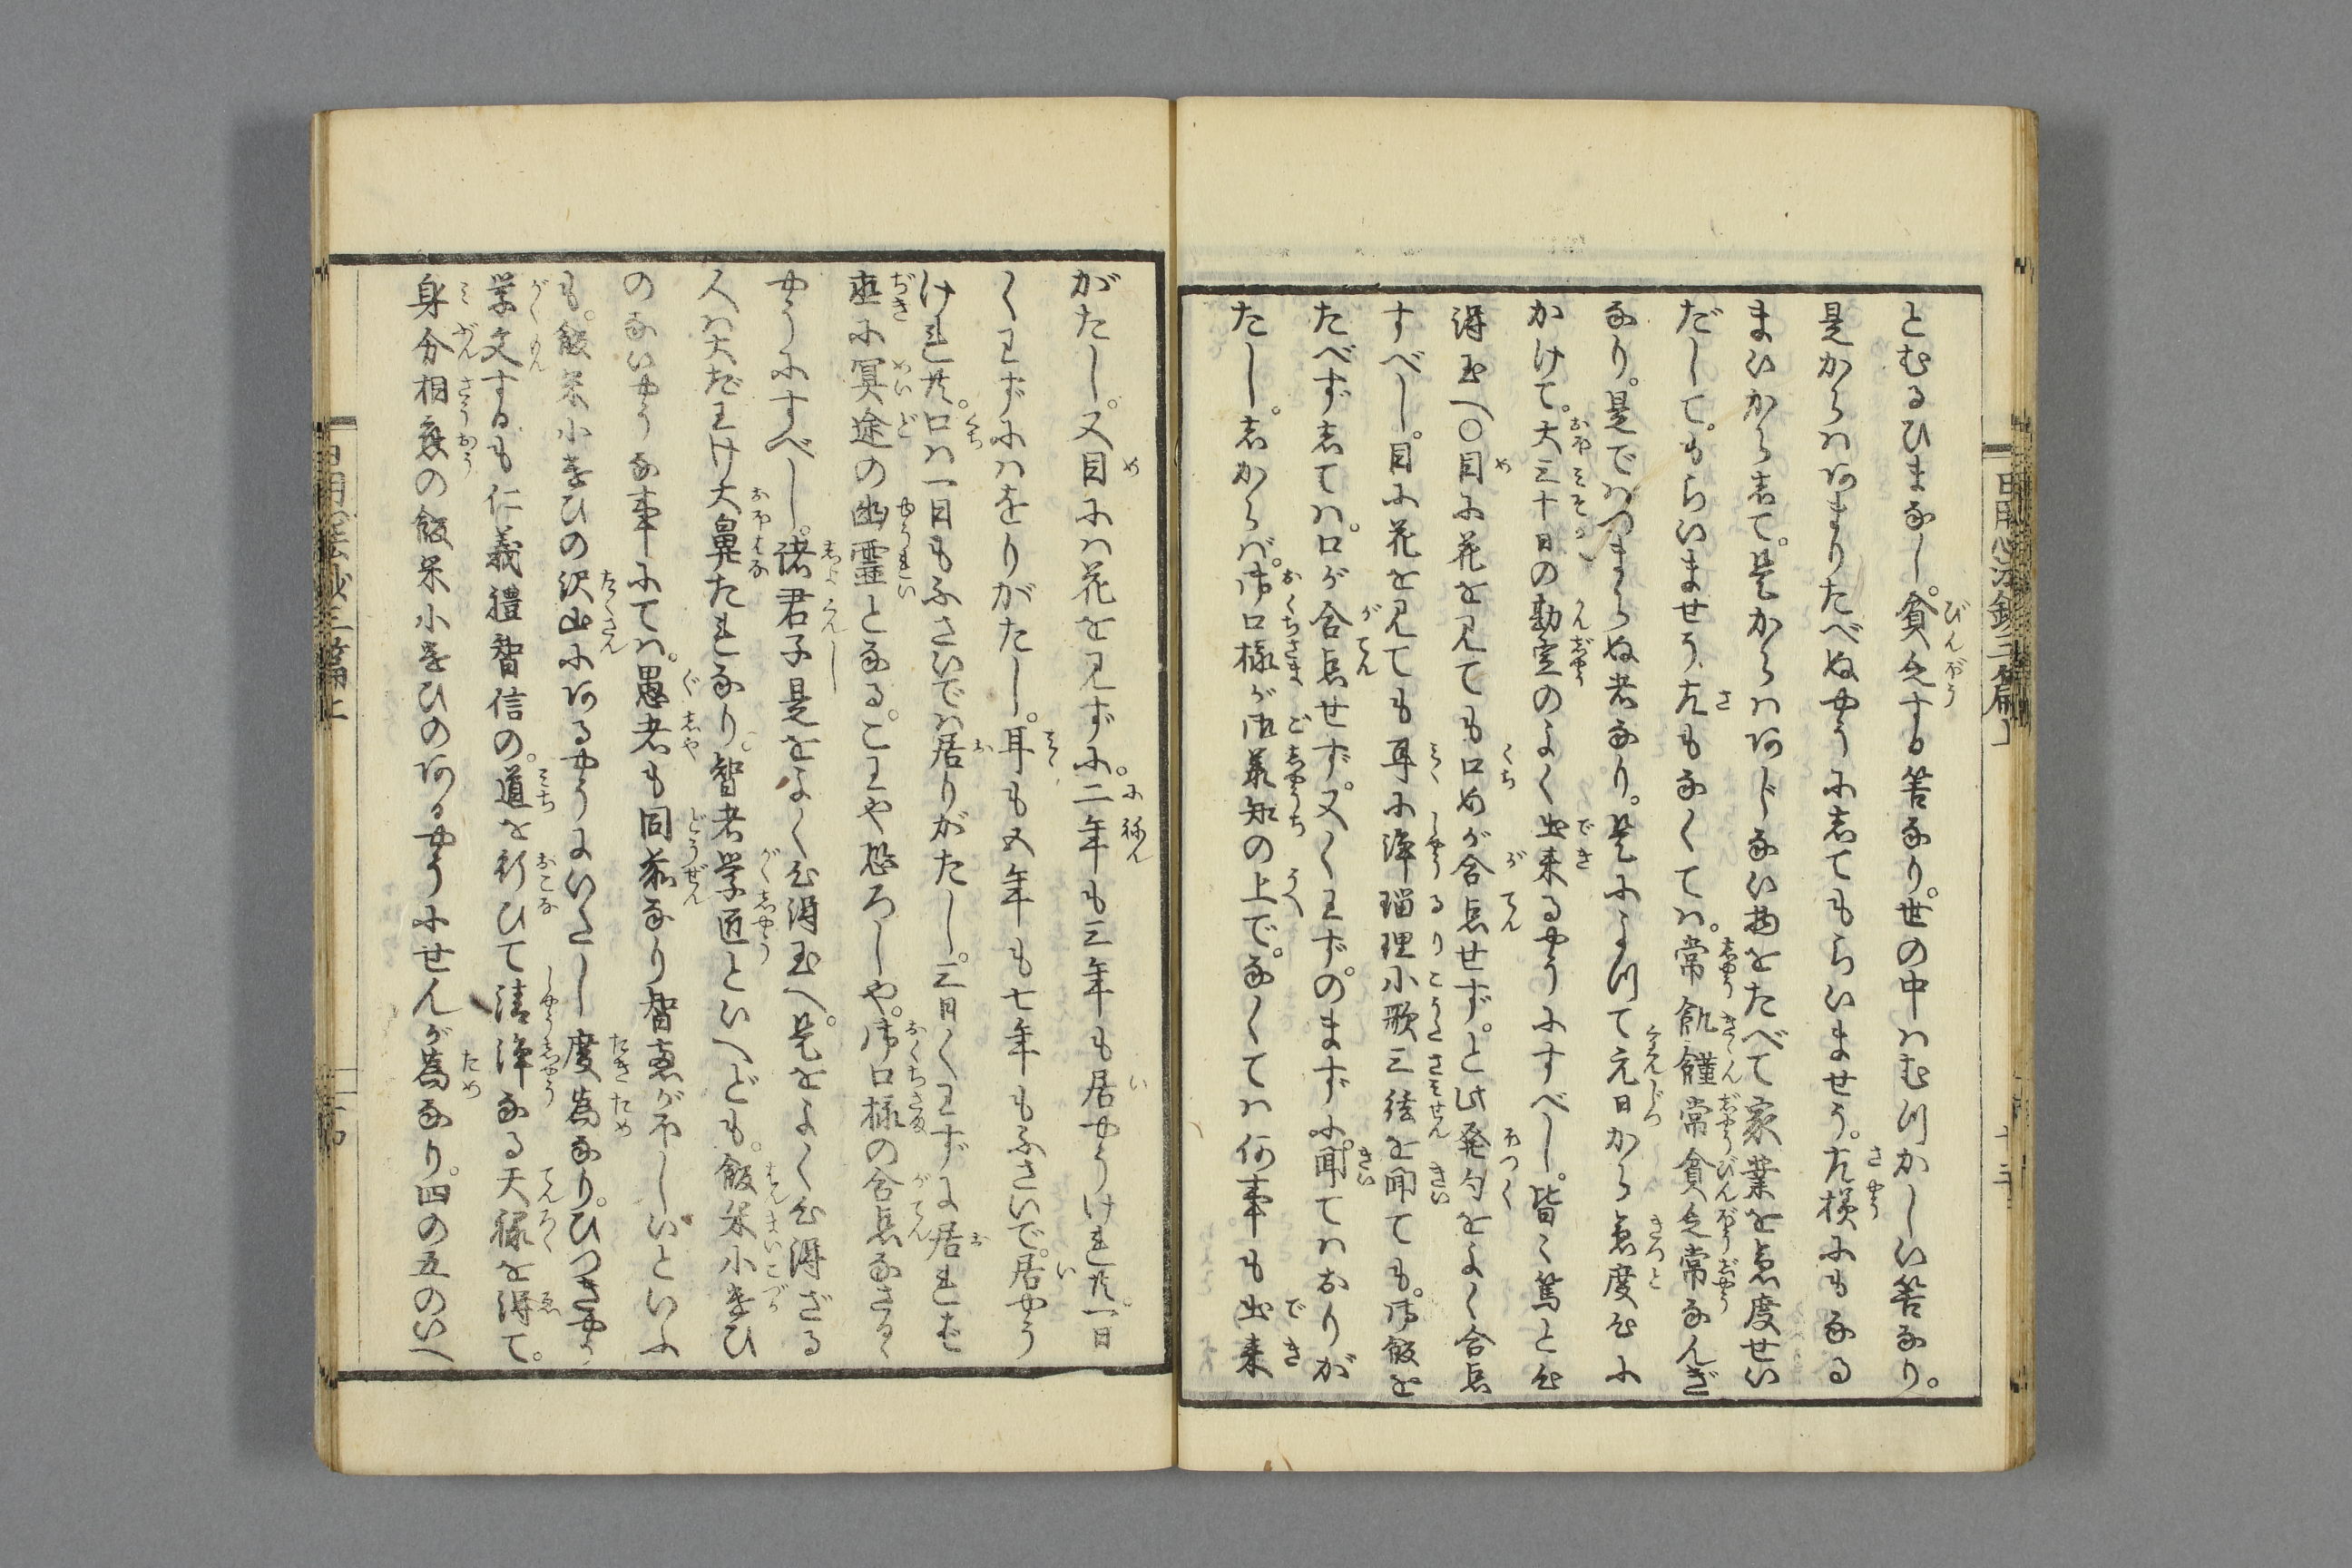 とむるひまなし。貧乏する筈なり。世の中はむつかしい筈なり。
是からはあまりたべぬやうに志てもらいませう。左様にもなる
まいから志て。是からはあじない物をたべて家業を急度せい
だして。もらいませう。左もなくては。常飢饉常貧乏常なんぎ
なり。是ではつまらぬ者なり。是によつて元日から急度心に
かけて。大三十日の勘定のよく出来るやうにすべし。皆々篤と心
得玉へ〇目に花を見ても口めが合点せず。と此発句をよく合点
すべし。目に花を見ても耳に浄瑠理小歌三絃を聞ても。御飯を
たべず志ては。口が合点せず。又くわずのまずに。聞てはおりが
たし。志からば。御口様が御承知の上で。なくては何事も出来
がたし。又目には花を見ずに。二年も三年も居やうけれ共。一日
くわずにはをりがたし。耳も五年も七年もふさいで。居やう
けれ共。口は一日もふさいでは居りがたし。三日くわずに居れば
直に冥途の幽霊となる。こわや恐ろしや。御口様の合点なさるゝ
やうにすべし。諸君子是をよく心得玉へ。是をよく心得ざる
人は大だわけ大鼻たれなり。智者学匠といへども。飯米小遣ひ
のないやうな事にては。愚者も同前なり智恵がほしいといふ
も。飯米小遣ひの沢山にあるやうにいたし度為なり。ひつきやう
学文するも仁義礼智信の。道を行ひて清浄なる天禄を得て。
身分相応の飯米小遣ひのあるやうにせんが為なり。四の五のいへ